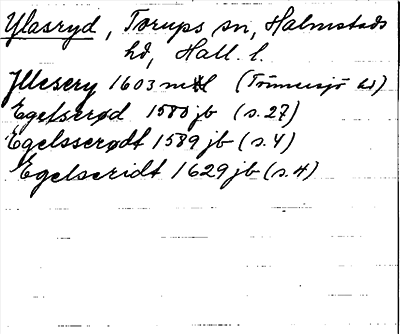 Ylasryd, Torups sn, Halmstads
hd, Hall. l.
Jllesery 1603 mtl (Tönnersjö hd)
Egelserød 1580 jb (s. 27)
Egelsserødt 1589 jb (s. 4)
Egelseridt 1629 jb (s. 4)